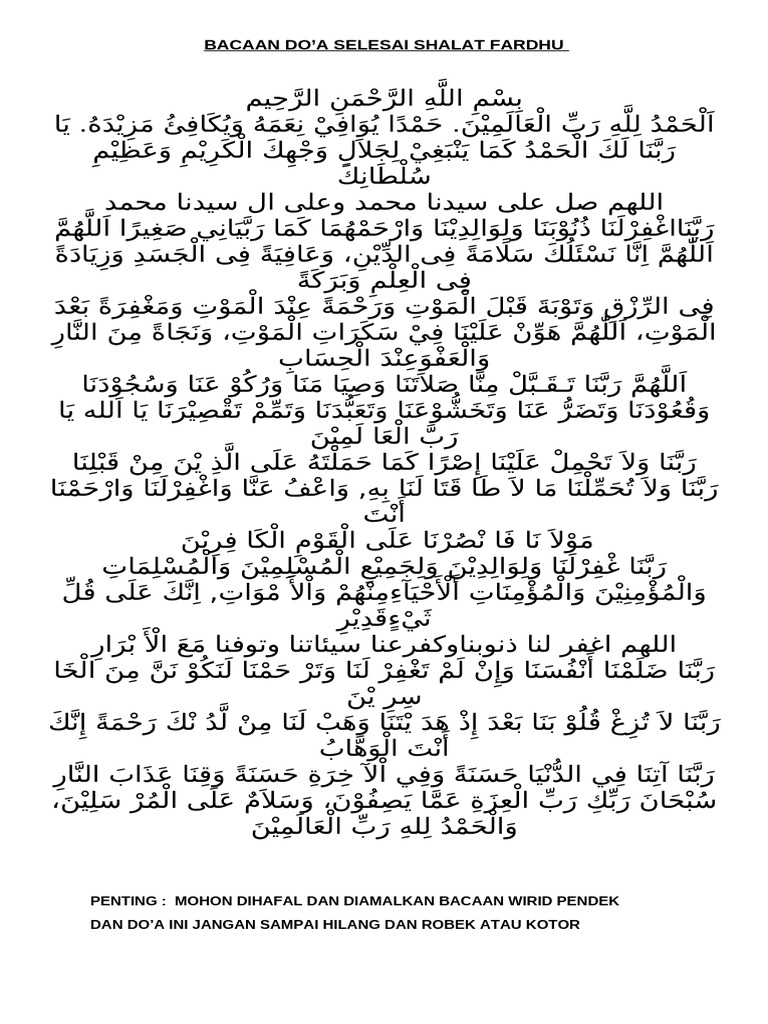 BACAAN DO'A SELESAI SHALAT FARDHU
بِسْمِ اللَّهِ الرَّحْمَنِ الرَّحِيم
اَلْحَمْدُ لِلَّهِ رَبِّ الْعَالَمِيْنَ. حَمْدًا يُوَافِيْ نِعَمَهُ وَيُكَافِئُ مَزِيْدَهُ. يَا
رَبَّنَا لَكَ الْحَمْدُ كَمَا يَنْبَغِيْ لِجَلاَلِ وَجْهِكَ الْكَرِيْمِ وَعَظِيْمِ
سُلْطَانِكَ
اللهم صل على سيدنا محمد وعلى ال سيدنا محمد
رَبَّنَااغْفِرْلَنَا ذُنُوْبَنَا وَلِوَالِدِيْنَا وَارْحَمْهُمَا كَمَا رَبَّيَانِي صَغِيرًا اَللَّهُمَّ
اَللَّهُمَّ اِنَّا نَسْئَلُكَ سَلَامَةً فِى الدِّيْنِ، وَعَافِيَةً فِى الْجَسَدِ وَزِيَادَةً
فِى الْعِلْمِ وَبَرَكَةً
فِى الرِّزْقِ وَتَوْبَةَ قَبْلَ الْمَوْتِ وَرَحْمَةً عِنْدَ الْمَوْتِ وَمَغْفِرَةً بَعْدَ
الْمَوْتِ، اَللَّهُمَّ هَوِّنْ عَلَيْنَا فِيْ سَكَرَاتِ الْمَوْتِ، وَنَجَاةً مِنَ النَّارِ
وَالْعَفْوَعِنْدَ الْحِسَابِ
اَللَّهُمَّ رَبَّنَا تَـقَـبَّلْ مِنَّا صَلاَتَنَا وَصِيَا مَنَا وَرُكُوْ عَنَا وَسُجُوْدَنَا
وَقُعُوْدَنَا وَتَضَرُّ عَنَا وَتَخَشُّوْعَنَا وَتَعَبُّدَنَا وَتَمِّمْ تَقْصِيْرَنَا يَا اَلله يَا
رَبَّ الْعَا لَمِيْنَ
رَبَّنَا وَلاَ تَحْمِلْ عَلَيْنَا إِصْرًا كَمَا حَمَلْتَهُ عَلَى الَّذِ يْنَ مِنْ قَبْلِنَا
رَبَّنَا وَلاَ تُحَمِّلْنَا مَا لاَ طَا قَتَا لَنَا بِهِ, وَاعْفُ عَنَّا وَاغْفِرْلَنَا وَارْحَمْنَا
أَنْتَ
مَوْلاَ نَا فَا نْصُرْنَا عَلَى الْقَوْمِ الْكَا فِرِيْنَ
رَبَّنَا غْفِرْلَنَا وَلِوَالِدِيْنَ وَلِجَمِيْعِ الْمُسْلِمِيْنَ وَالْمُسْلِمَاتِ
وَالْمُؤْمِنِيْنَ وَالْمُؤْمِنَاتِ أَلْأَحْيَآءِمِنْهُمْ وَاْلأَ مْوَاتِ, اِنَّكَ عَلَى قُلِّ
ثَيْءٍقَدِيْرِ
اللهم اغفر لنا ذنوبناوكفرعنا سيئاتنا وتوفنا مَعَ الْأَ بْرَارِ
رَبَّنَا ضَلَمْنَا أَنْفُسَنَا وَإِنْ لَمْ تَغْفِرْ لَنَا وَتَرْ حَمْنَا لَنَكُوْ نَنَّ مِنَ الْخَا
سِرِ يْنَ
رَبَّنَا لاَ تُزِغْ قُلُوْ بَنَا بَعْدَ إِذْ هَدَ يْتَنَا وَهَبْ لَنَا مِنْ لَّدُ نْكَ رَحْمَةً إِنَّكَ
أَنْتَ الْوَهَّابُ
رَبَّنَا آتِنَا فِي الدُّنْيَا حَسَنَةً وَفِي اْلآ خِرَةِ حَسَنَةً وَقِنَا عَذَابَ النَّارِ
سُبْحَانَ رَبِّكِ رَبِّ الْعِزَةِ عَمَّا يَصِفُوْنَ، وَسَلاَمٌ عَلَى الْمُرْ سَلِيْنَ،
وَالْحَمْدُ لِلهِ رَبِّ الْعَالَمِيْنَ
PENTING : MOHON DIHAFAL DAN DIAMALKAN BACAAN WIRID PENDEK
DAN DO'A INI JANGAN SAMPAI HILANG DAN ROBEK ATAU KOTOR